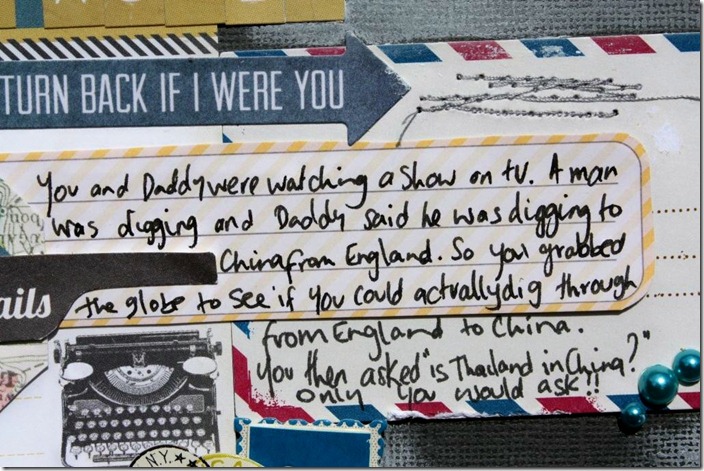 TURN BACK IF I WERE YOU
You and Daddy were watching a show on tv. A man
was digging and Daddy said he was digging to
China from England. So you grabbed
ails
the globe to see if you could actually dig through
from England to China.
You then asked "is Thailand in China?"
only you would ask!!
N.Y.